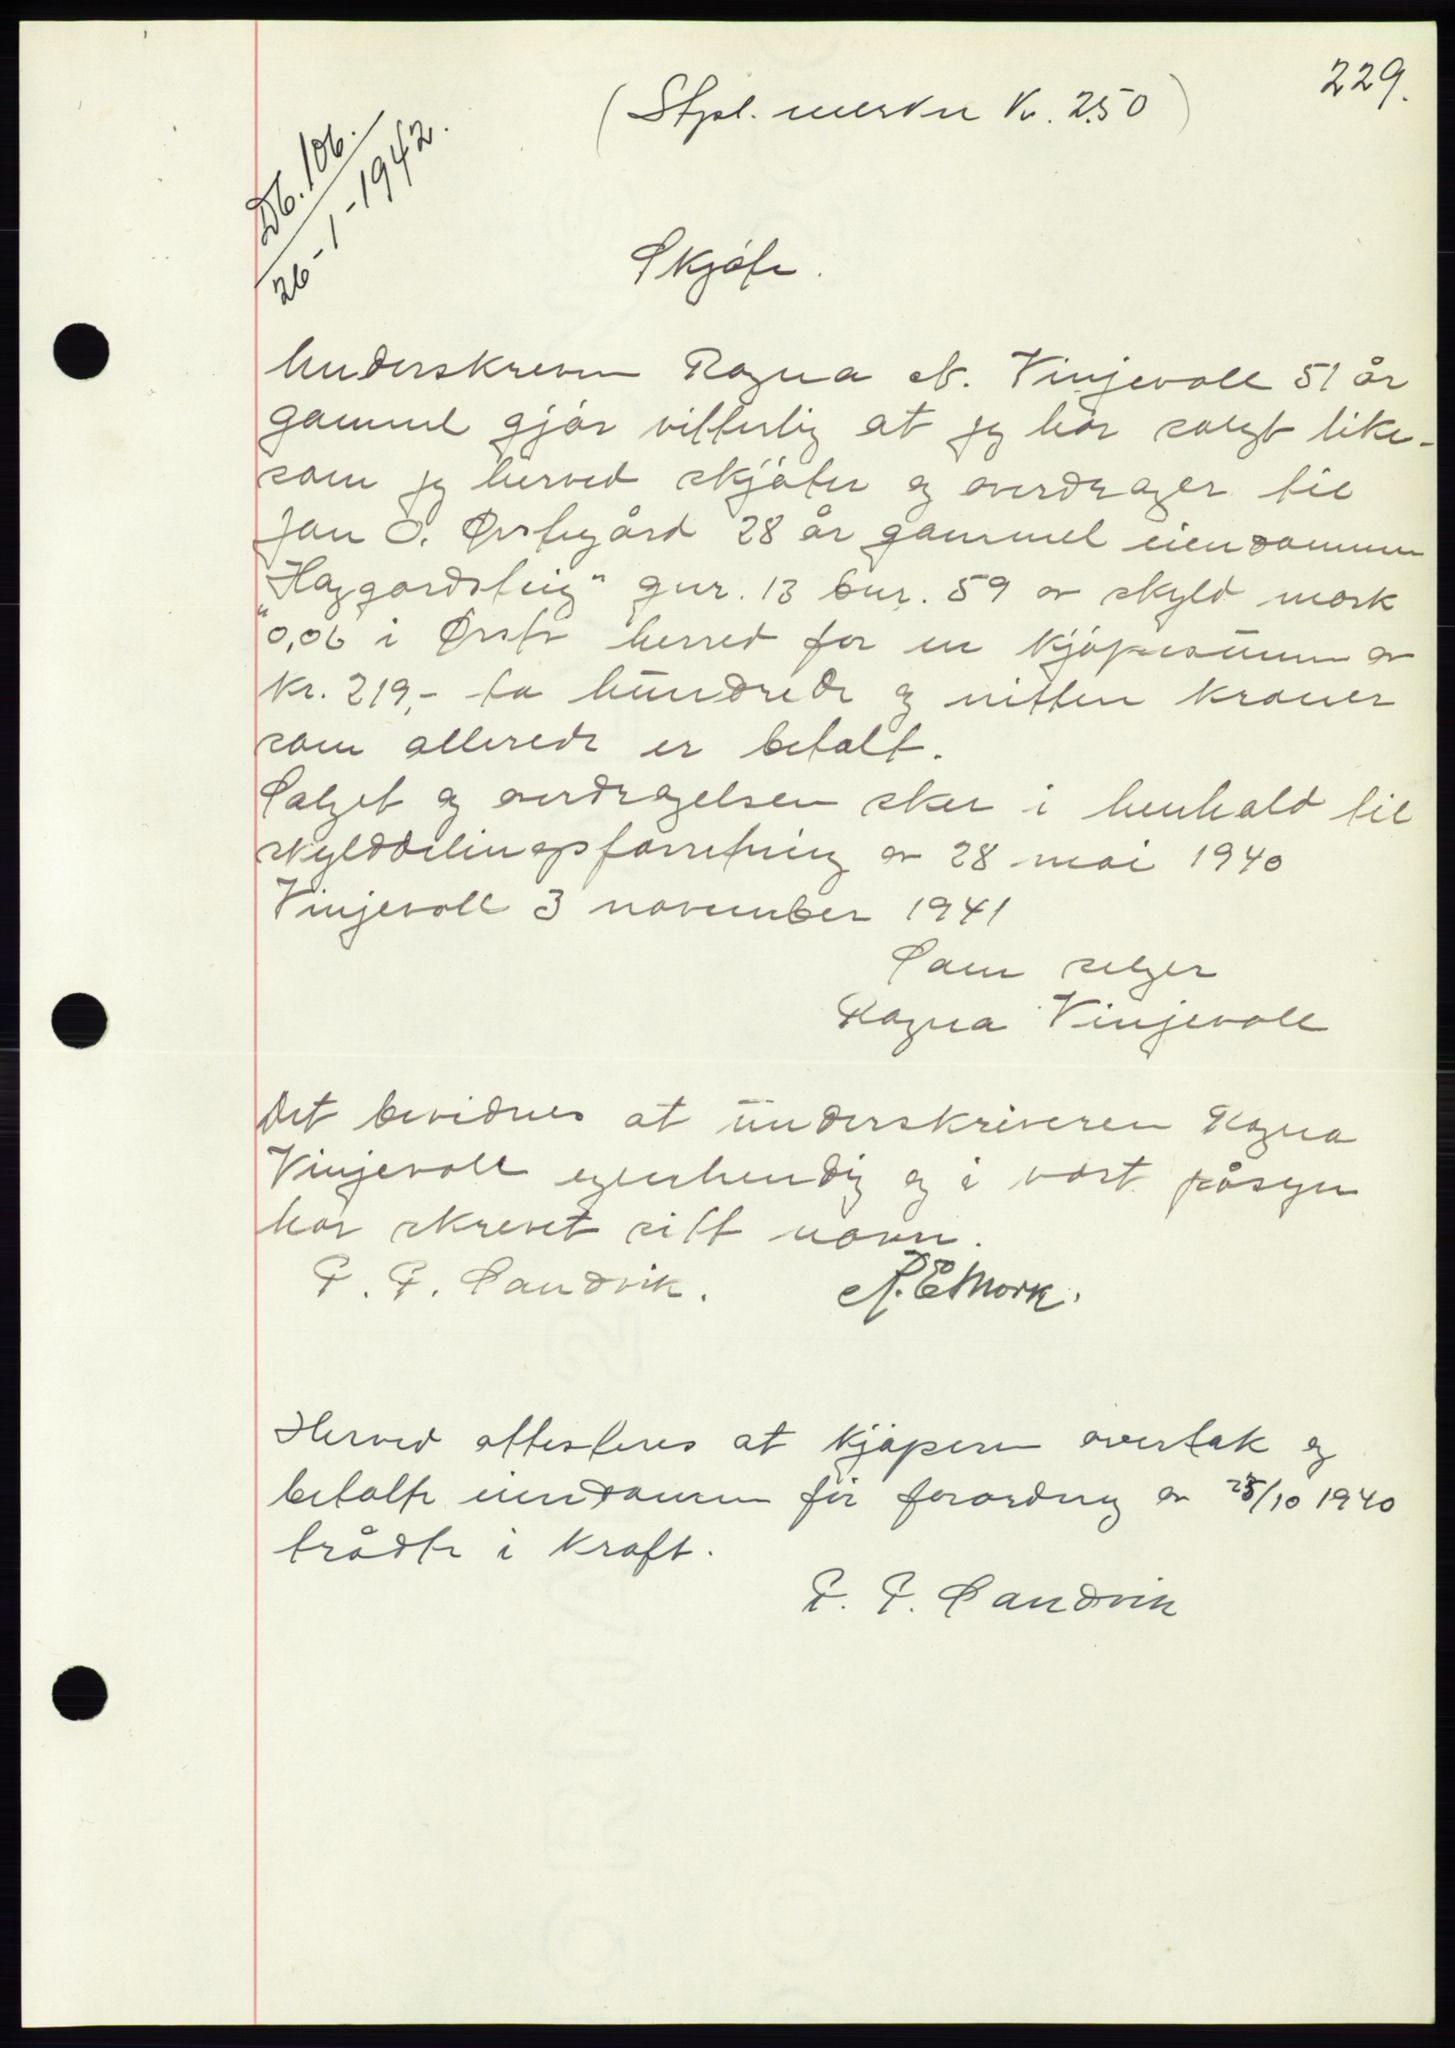 229.
(Stpl. merke Kr. 2.50)
Db. 106.
26-1-1942.
Skjøte.
Underskreven Ragna N. Vinjevoll 51 år
gammel gjør vitterlig at jeg har solgt like-
som jeg herved skjøter og overdrager til
Jon O. Ørstegård 28 år gammel eiendommen
"Haggardsteig" gnr. 13 bnr. 59 av skyld mark
0,06 i Ørsta herred for en kjøpesum av
Kr. 219,- to hundrede og nitten kroner
som allerede er betalt.
Salget og overdragelsen sker i henhold til
skylddelingsforretning av 28 mai 1940
Vinjevoll 3 november 1941
Som selger
Ragna Vinjevoll
Det bevidnes at underskriveren Ragna
Vinjevoll egenhendig og i vort påsyn
har skrevet sitt navn.
P. P. Sandvik. A. E Mork.
Herved attesteres at kjøperen overtok og
betalte eiendommen før forordning av 25/10 1940
trådte i kraft.
P. P. Sandvik